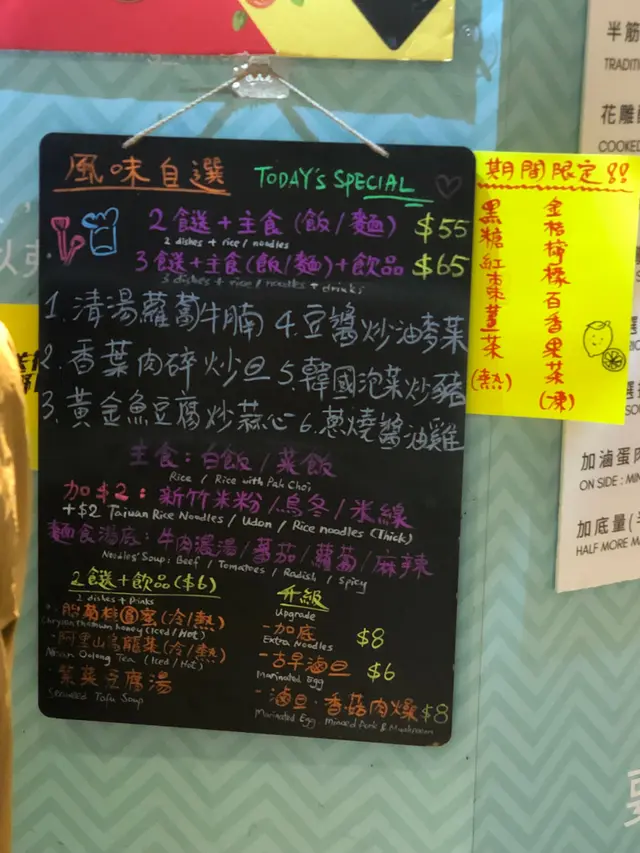 風味自選 TODAY'S SPECIAL
2餸+主食(飯/麵) $55
2 dishes + rice/noodles
3餸+主食(飯/麵)+飲品 $65
3 dishes + rice/noodles + drinks
1. 清湯蘿蔔牛腩 4. 豆醬炒油麥菜
2. 香葉肉碎炒旦 5. 韓國泡菜炒豬
3. 黃金魚豆腐炒蒜心 6. 蔥燒醬油雞
主食:白飯/菜飯
Rice / Rice with Pak Choi
加$2:新竹米粉/烏冬/米線
+$2 Taiwan Rice Noodles / Udon / Rice noodles (Thick)
麵食湯底:牛肉濃湯/蕃茄/蘿蔔/麻辣
Noodles' Soup: Beef / Tomatoes / Radish / Spicy
2餸+飲品($6)
2 dishes + Drinks
(冷/熱)
Chrysanthemum honey (Iced/Hot)
阿里山烏龍茶(冷/熱)
Oolong Tea (Iced/Hot)
紫菜豆腐湯
Seaweed Tofu Soup
升級
Upgrade
-加底 $8
Extra Noodles
-古早滷旦 $6
Marinated Egg
-滷旦·香菇肉燥 $8
Marinated Egg · Minced Pork & Mushroom
期間限定!!
黑糖紅棗薑茶(熱)
金桔檸檬百香果茶(凍)
半筋
TRADITI
花雕
COOKED
加滷蛋肉
ON SIDE : MIN
加底量(
HALF MORE